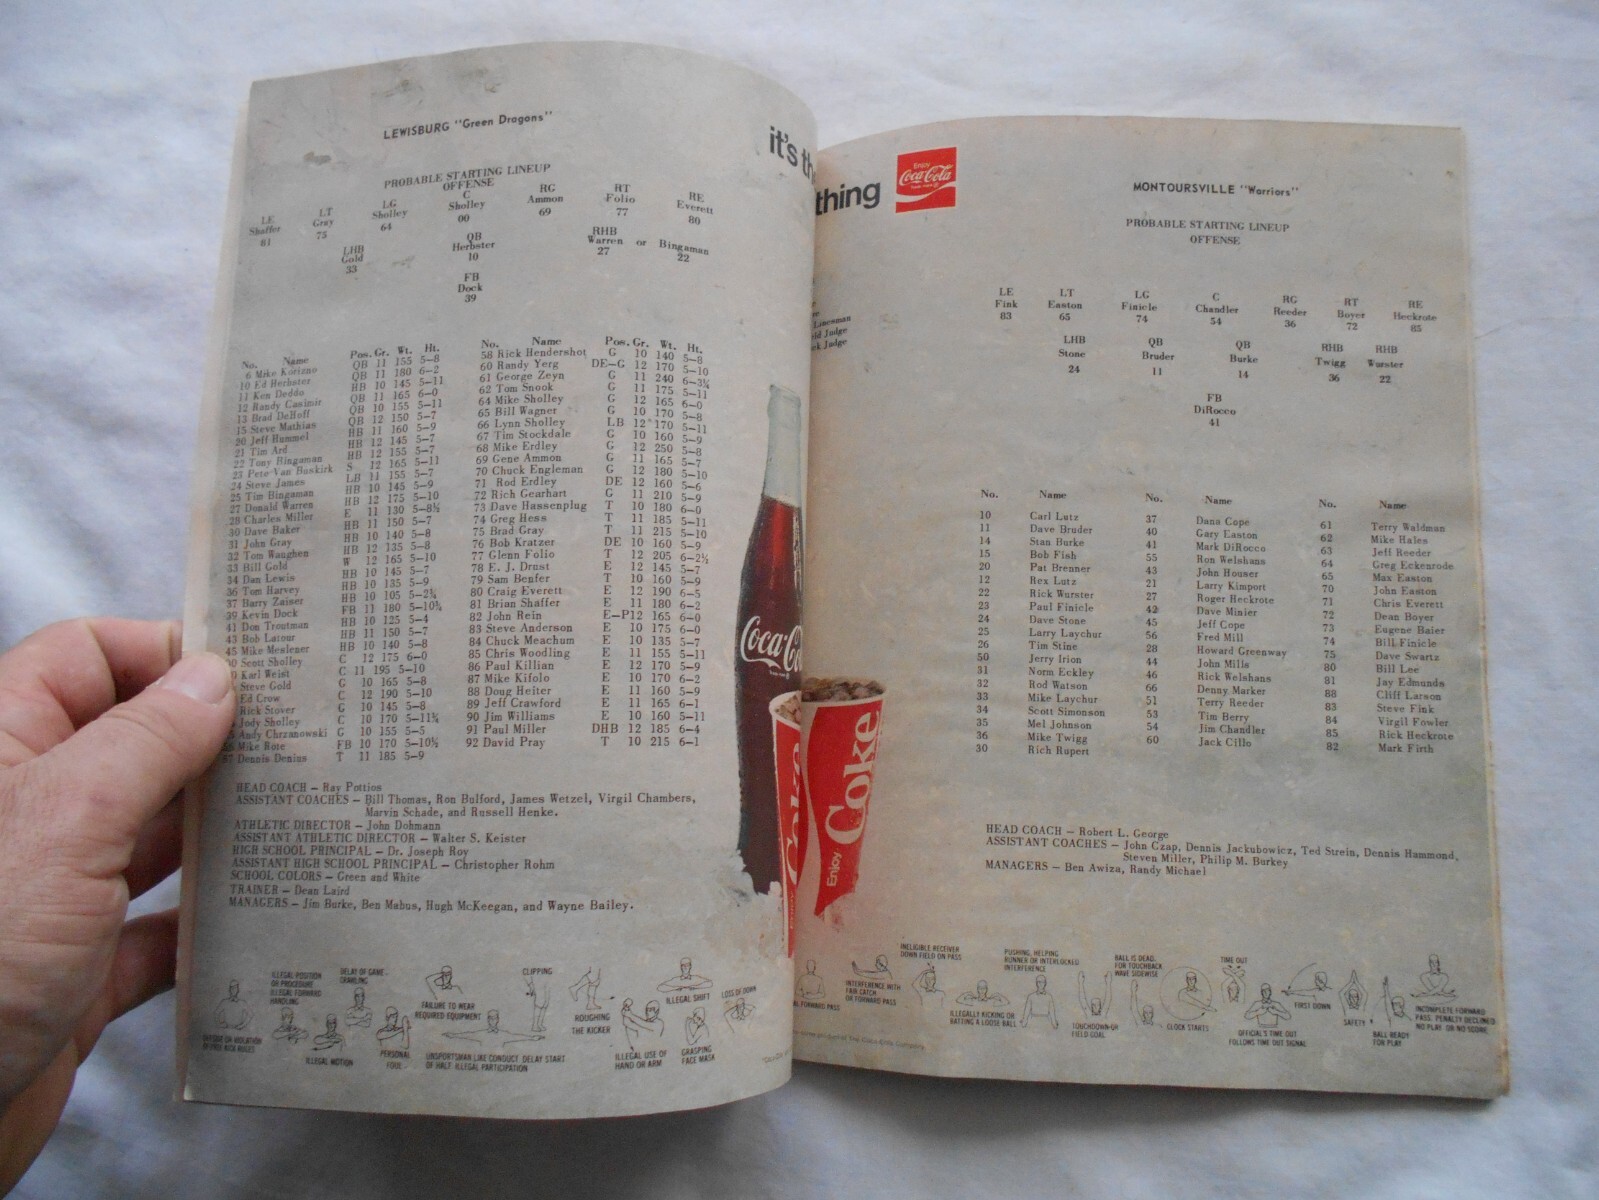 LEWISBURG "Green Dragons"
PROBABLE STARTING LINEUP
OFFENSE
LE LT LG C RG RT RE
Shaffer Gray Sholley Sholley Ammon Folio Everett
81 75 64 00 69 77 80
LHB QB RHB
Gold Herbster Warren or Bingaman
33 10 27 22
FB
Dock
39
No. Name Pos. Gr. Wt. Ht.
6 Mike Korizno QB 11 155 5-8
10 Ed Herbster QB 11 180 6-2
11 Ken Deddo HB 10 145 5-11
12 Randy Casimir QB 11 165 6-0
13 Brad DeHoff QB 10 155 5-11
15 Steve Mathias QB 12 150 5-7
20 Jeff Hummel HB 11 160 5-9
21 Tim Ard HB 12 145 5-7
22 Tony Bingaman HB 12 155 5-7
23 Pete Van Buskirk S 12 165 5-11
24 Steve James LB 11 155 5-7
25 Tim Bingaman HB 10 145 5-9
27 Donald Warren HB 12 175 5-10
28 Charles Miller E 11 130 5-8½
30 Dave Baker HB 11 150 5-7
31 John Gray HB 10 140 5-8
32 Tom Waughen HB 12 135 5-8
33 Bill Gold W 12 165 5-10
34 Dan Lewis HB 10 145 5-7
36 Tom Harvey HB 10 135 5-9
37 Barry Zaiser HB 10 105 5-2¾
39 Kevin Dock FB 11 180 5-10¾
41 Don Troutman HB 10 125 5-4
43 Bob Latour HB 11 150 5-7
45 Mike Meslener HB 10 140 5-8
Scott Sholley C 12 175 6-0
Karl Weist C 11 195 5-10
Steve Gold G 10 165 5-8
Ed Crow C 12 190 5-10
Rick Stover G 10 145 5-8
Jody Sholley C 10 170 5-11¾
Andy Chrzanowski G 10 155 5-5
Mike Rote FB 10 170 5-10½
57 Dennis Denius T 11 185 5-9
No. Name Pos. Gr. Wt. Ht.
58 Rick Hendershot G 10 140 5-8
60 Randy Yerg DE-G 12 170 5-10
61 George Zeyn G 11 240 6-3¾
62 Tom Snook G 11 175 5-11
64 Mike Sholley G 12 165 6-0
65 Bill Wagner G 10 170 5-8
66 Lynn Sholley LB 12 170 5-11
67 Tim Stockdale G 10 160 5-9
68 Mike Erdley G 12 250 5-8
69 Gene Ammon G 11 165 5-7
70 Chuck Engleman G 12 180 5-10
71 Rod Erdley DE 12 160 5-6
72 Rich Gearhart G 11 210 5-9
73 Dave Hassenplug T 10 180 6-0
74 Greg Hess T 11 185 5-11
75 Brad Gray T 11 215 5-10
76 Bob Kratzer DE 10 160 5-9
77 Glenn Folio T 12 205 6-2½
78 E. J. Drust E 12 145 5-7
79 Sam Benfer T 10 160 5-9
80 Craig Everett E 12 190 6-5
81 Brian Shaffer E 11 180 6-2
82 John Rein E-P12 165 6-0
83 Steve Anderson E 10 175 6-0
84 Chuck Meachum E 10 135 5-7
85 Chris Woodling E 11 155 5-11
86 Paul Killian E 12 170 5-9
87 Mike Kifolo E 10 170 6-2
88 Doug Heiter E 11 160 5-9
89 Jeff Crawford E 11 165 6-1
90 Jim Williams E 10 160 5-11
91 Paul Miller DHB 12 185 6-4
92 David Pray T 10 215 6-1
HEAD COACH – Ray Pottios
ASSISTANT COACHES – Bill Thomas, Ron Bulford, James Wetzel, Virgil Chambers,
Marvin Schade, and Russell Henke.
ATHLETIC DIRECTOR – John Dohmann
ASSISTANT ATHLETIC DIRECTOR – Walter S. Keister
HIGH SCHOOL PRINCIPAL – Dr. Joseph Roy
ASSISTANT HIGH SCHOOL PRINCIPAL – Christopher Rohm
SCHOOL COLORS – Green and White
TRAINER – Dean Laird
MANAGERS – Jim Burke, Ben Mabus, Hugh McKeegan, and Wayne Bailey.
OFFSIDE OR VIOLATION
OF FREE KICK RULES
ILLEGAL POSITION
OR PROCEDURE
ILLEGAL FORWARD
HANDLING
ILLEGAL MOTION
DELAY OF GAME
CRAWLING
PERSONAL
FOUL
FAILURE TO WEAR
REQUIRED EQUIPMENT
UNSPORTSMAN LIKE CONDUCT DELAY START
OF HALF ILLEGAL PARTICIPATION
CLIPPING
ROUGHING
THE KICKER
ILLEGAL USE OF
HAND OR ARM
ILLEGAL SHIFT
GRASPING
FACE MASK
LOSS OF DOWN
it's th
Coca-Co
Coke
thing
Enjoy
Coca-Cola
Linesman
ld Judge
ck Judge
Enjoy
Coke
MONTOURSVILLE "Warriors"
PROBABLE STARTING LINEUP
OFFENSE
LE LT LG C RG RT RE
Fink Easton Finicle Chandler Reeder Boyer Heckrote
83 65 74 54 36 72 85
LHB QB QB RHB RHB
Stone Bruder Burke Twigg Wurster
24 11 14 36 22
FB
DiRocco
41
No. Name No. Name No. Name
10 Carl Lutz 37 Dana Cope 61 Terry Waldman
11 Dave Bruder 40 Gary Easton 62 Mike Hales
14 Stan Burke 41 Mark DiRocco 63 Jeff Reeder
15 Bob Fish 55 Ron Welshans 64 Greg Eckenrode
20 Pat Brenner 43 John Houser 65 Max Easton
12 Rex Lutz 21 Larry Kimport 70 John Easton
22 Rick Wurster 27 Roger Heckrote 71 Chris Everett
23 Paul Finicle 42 Dave Minier 72 Dean Boyer
24 Dave Stone 45 Jeff Cope 73 Eugene Baier
25 Larry Laychur 56 Fred Mill 74 Bill Finicle
26 Tim Stine 28 Howard Greenway 75 Dave Swartz
50 Jerry Irion 44 John Mills 80 Bill Lee
31 Norm Eckley 46 Rick Welshans 81 Jay Edmunds
32 Rod Watson 66 Denny Marker 88 Cliff Larson
33 Mike Laychur 51 Terry Reeder 83 Steve Fink
34 Scott Simonson 53 Tim Berry 84 Virgil Fowler
35 Mel Johnson 54 Jim Chandler 85 Rick Heckrote
36 Mike Twigg 60 Jack Cillo 82 Mark Firth
30 Rich Rupert
HEAD COACH – Robert L. George
ASSISTANT COACHES – John Czap, Dennis Jackubowicz, Ted Strein, Dennis Hammond,
Steven Miller, Philip M. Burkey
MANAGERS – Ben Awiza, Randy Michael
FORWARD PASS
INTERFERENCE WITH
FAIR CATCH
OR FORWARD PASS
INELIGIBLE RECEIVER
DOWN FIELD ON PASS
ILLEGALLY KICKING OR
BATTING A LOOSE BALL
PUSHING, HELPING
RUNNER OR INTERLOCKED
INTERFERENCE
TOUCHDOWN-OR
FIELD GOAL
BALL IS DEAD.
FOR TOUCHBACK
WAVE SIDEWISE
CLOCK STARTS
TIME OUT
OFFICIAL'S TIME OUT
FOLLOWS TIME OUT SIGNAL
FIRST DOWN
SAFETY
BALL READY
FOR PLAY
INCOMPLETE FORWARD
PASS. PENALTY DECLINED
NO PLAY OR NO SCORE